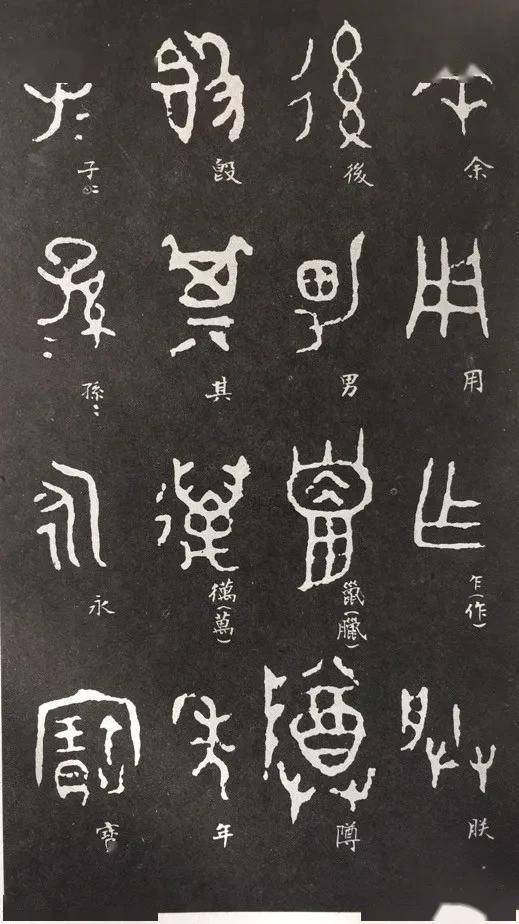 余
用
乍(作)
朕
後
男
巤(臘)
𣪘
其
(萬)
年
子〻
孫〻
永
寶